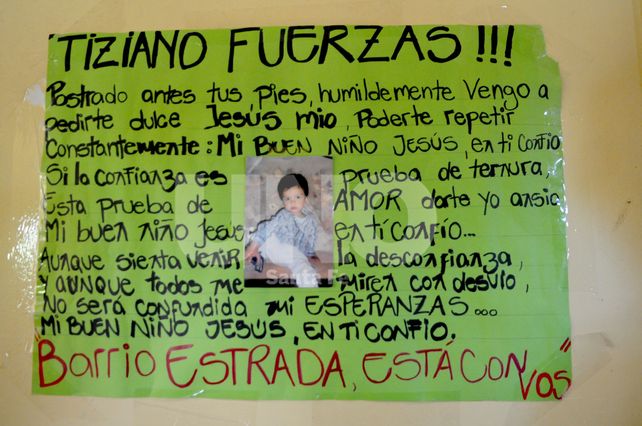 ¡TIZIANO FUERZAS!!!
Postrado antes tus pies, humildemente Vengo a
pedirte dulce JESÚS mio, Poderte repetir
Constantemente: Mi BUEN NIÑO JESÚS, en ti Confío
Si la confianza es prueba de ternura,
Esta prueba de AMOR darte yo ansio
Mi buen niño Jesus en ti confío...
Aunque sienta venir la desconfianza,
Y aunque todos me miren con desvio,
No será confundida mi ESPERANZAS...
Mi BUEN NIÑO JESÚS, EN TI CONFIO.
"Barrio ESTRADA, ESTÁ CON VOS"
UNO
Santa Fe